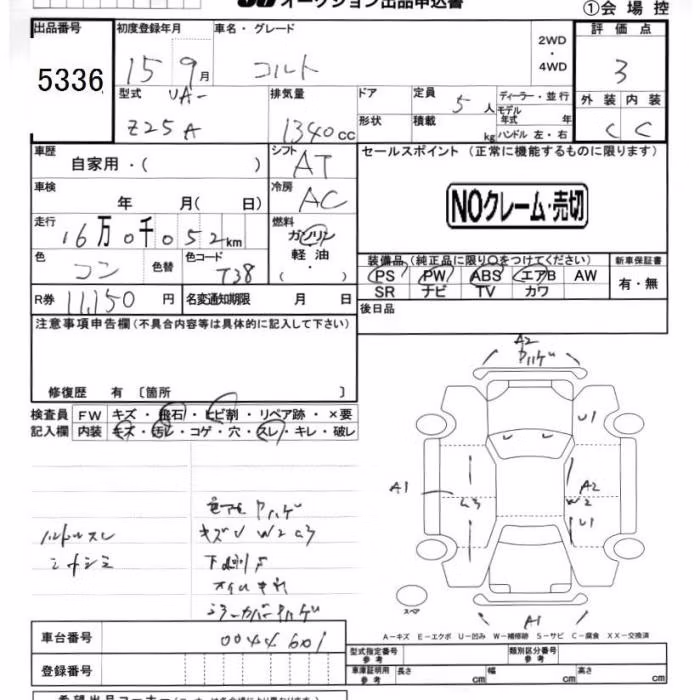 オークション出品申込書 ①会場控
出品番号 初度登録年月 車名・グレード 2WD・4WD 評価点
5336 15 9月 コルト 3
型式 UA- 排気量 ドア 定員 5人 ディーラー・並行 外装 内装
Z25A 1340cc 形状 積載 kg モデル年式 年 ハンドル 左・右 C C
車歴 自家用・( ) シフト AT セールスポイント (正常に機能するものに限ります)
車検 年 月( 日) 冷房 AC NOクレーム・売切
走行 16万0千052km 燃料 ガソリン 軽油・( )
色 コン 色替 色コード T38
装備品(純正品に限り○をつけてください) 新車保証書
PS PW ABS エアB AW 有・無
SR ナビ TV カワ
R券 11,150円 名変通知期限 月 日 後日品
注意事項申告欄(不具合内容等は具体的に記入して下さい)
修復歴 有〔箇所 〕
検査員 FW キズ・飛石・ヒビ割・リペア跡・×要
記入欄 内装 キズ・汚レ・コゲ・穴・スレ・キレ・破レ
A2
U1
A1 A2
W2
U1
キズ W2
ハンドルスレ
シートシミ
ミラーカバー
スペア A1
A-キズ E-エクボ U-凹み W-補修跡 S-サビ C-腐食 XX-交換済
車台番号 0044601
登録番号
型式指定番号 参考 類別区分番号 参考
車庫証明用 参考 長さ cm 幅 cm 高さ cm